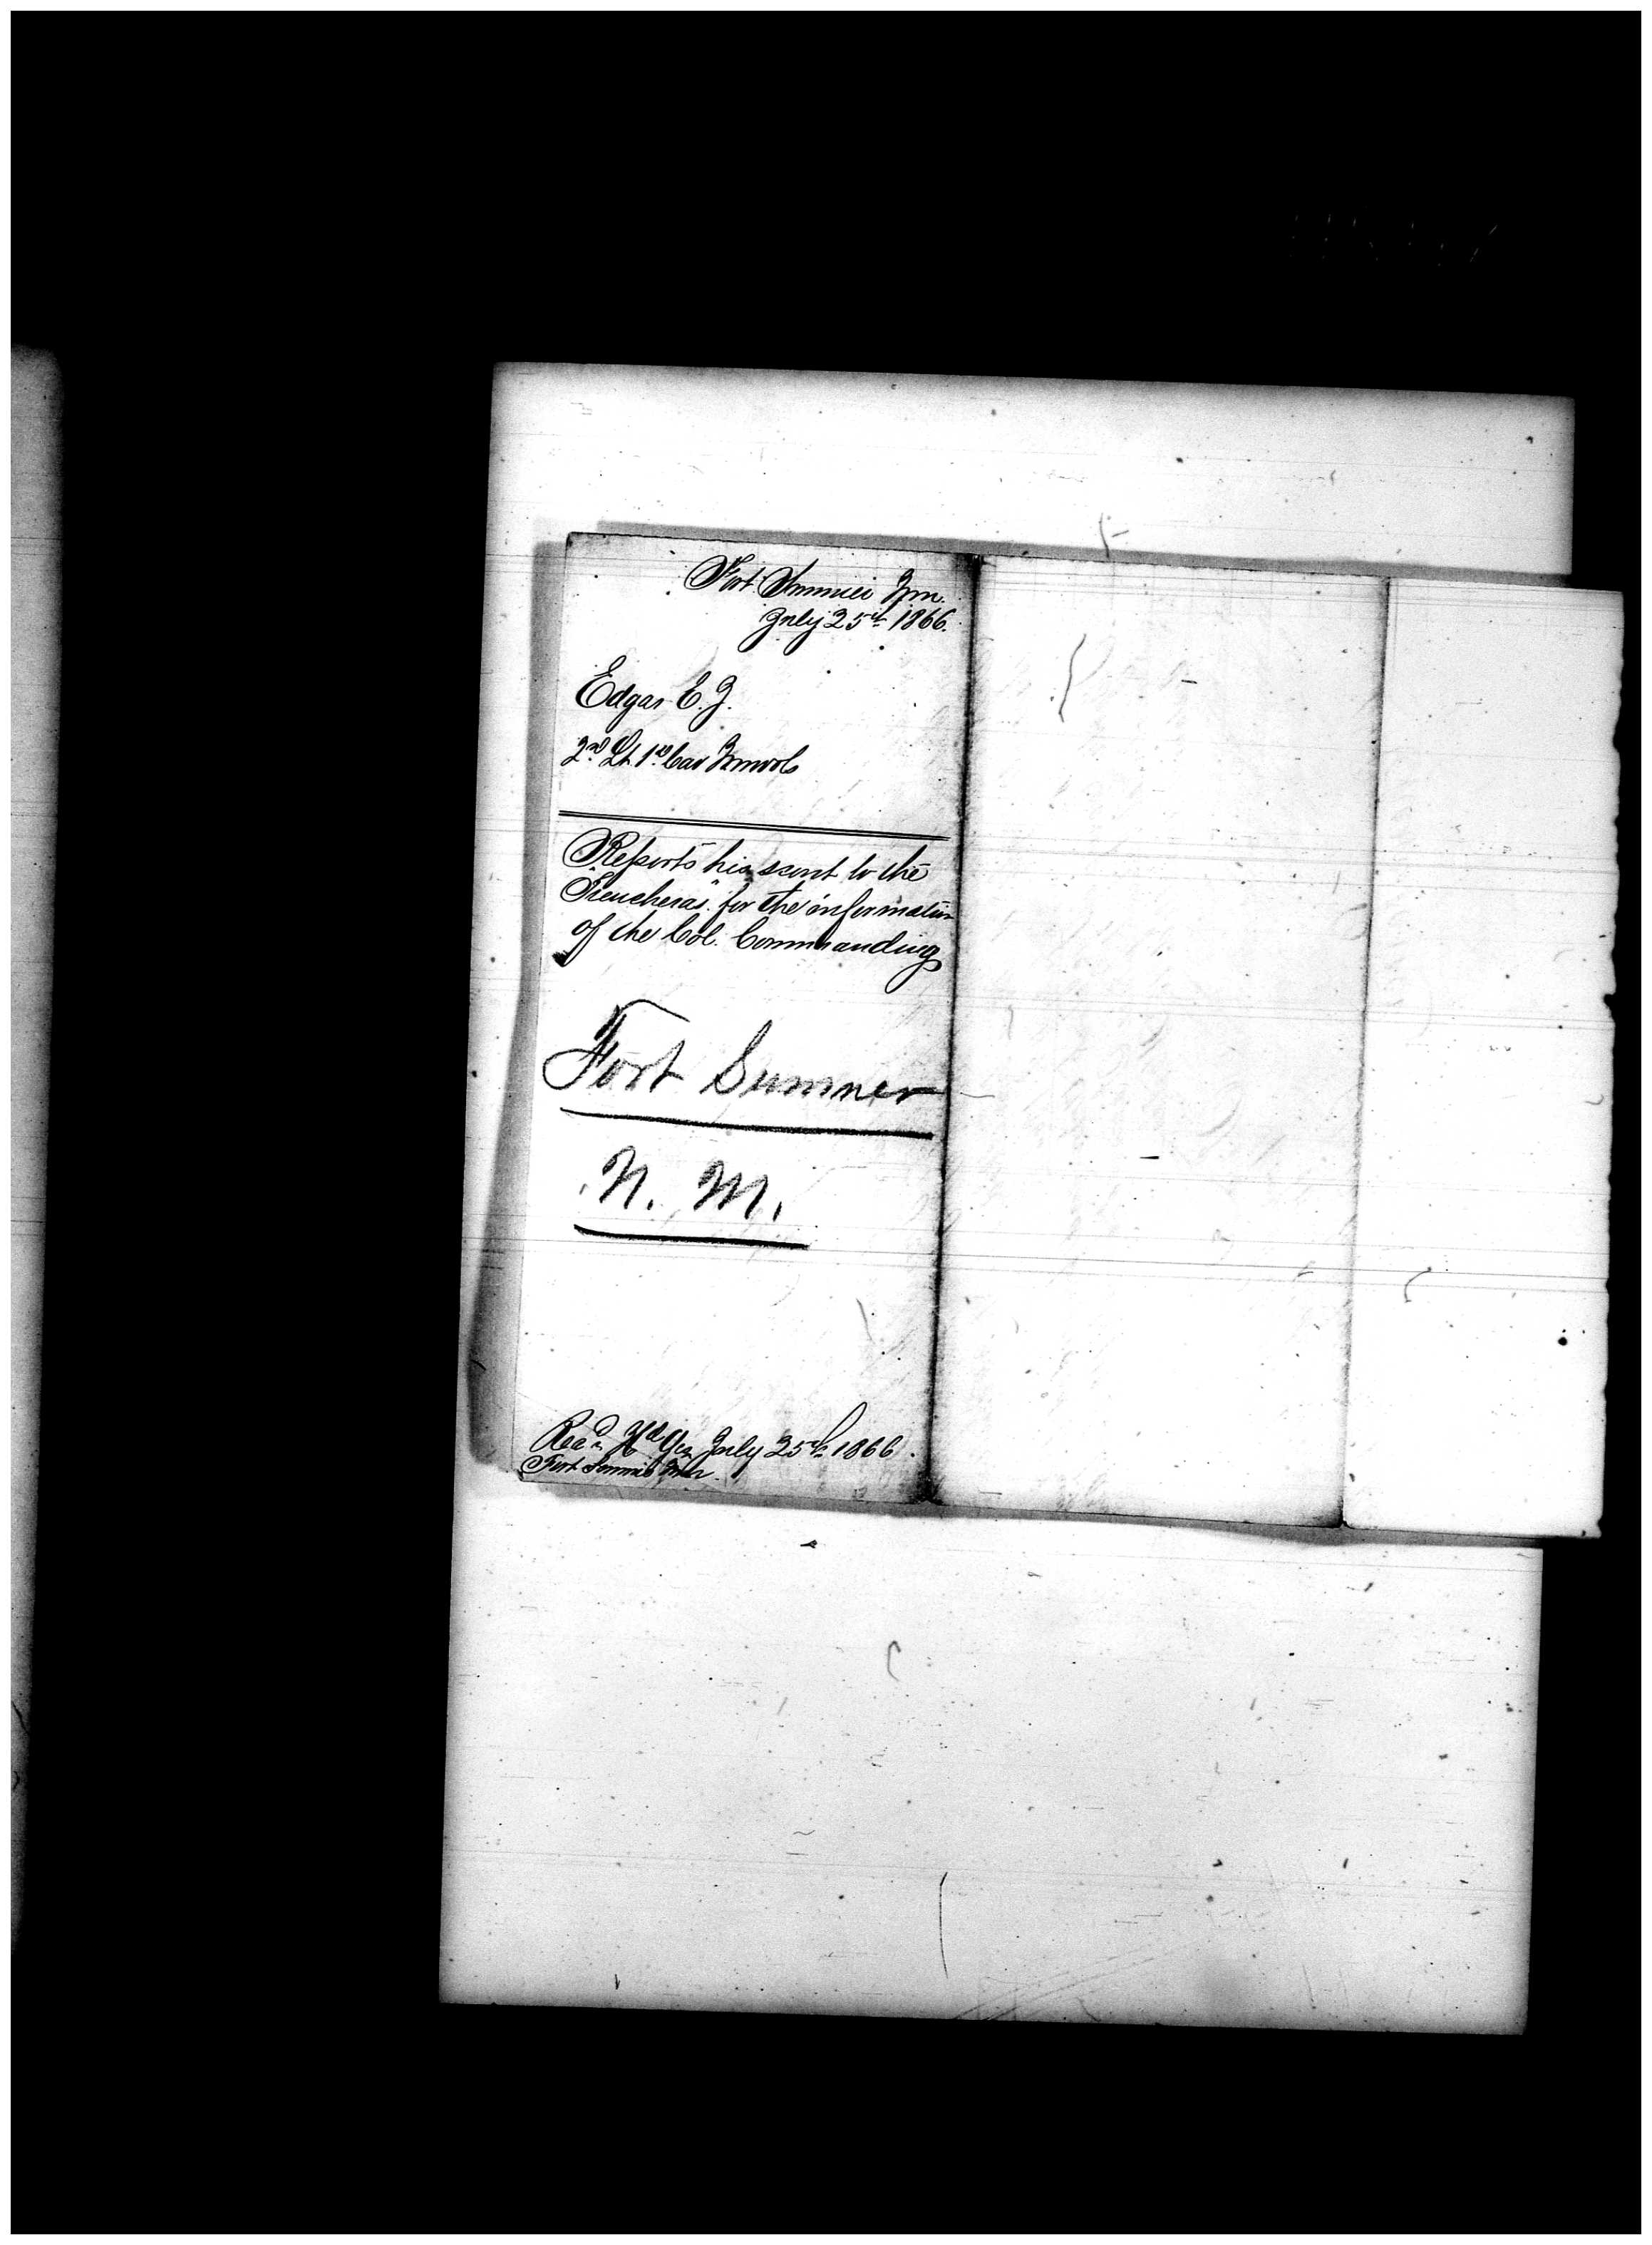 Fort Sumner N.M.
July 25th 1866.
Edgar E. J.
2nd Lt. 1st Cav N.M. Vols
Reports his scout to the
"Trencheras" for the information
of the Col. Commanding
Fort Sumner
N. M.
Rec'd Hd Qrs July 25th 1866.
Fort Sumner N.M.